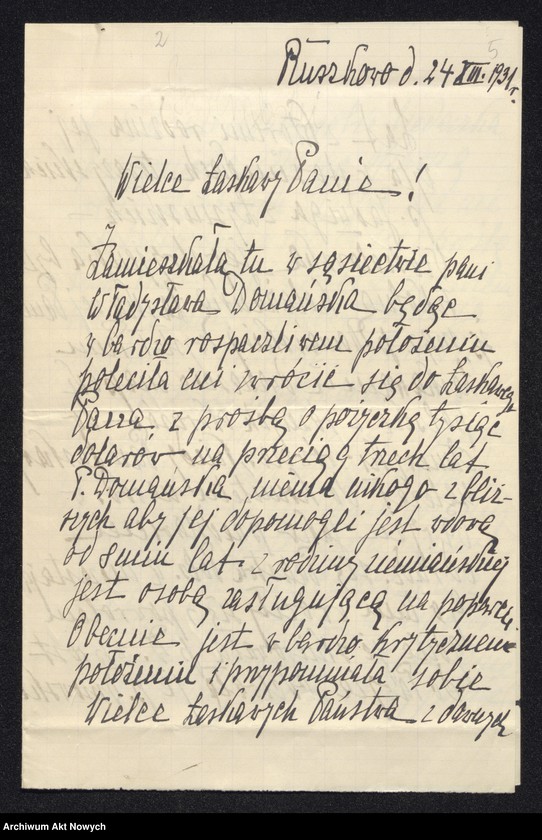 2
5
Ruszkowo d. 24 XII. 1931 r.
Wielce Łaskawy Panie!
Zamieszkała tu w sąsiectwie pani
Władysława Domańska będąc
w bardzo rospaczliwem położeniu
poleciła mi zwrócić się do Łaskawego
Pana z prośbą o porzyczkę tysiąc
dolarów na przeciąg trzech lat
P. Domańska niema nikogo z bliż-
szych aby jej dopomogli jest wdową
od 8miu lat z rodziny ziemiańskiej
jest osobą zasługującą na poparcie
Obecnie jest w bardzo krytycznem
położeniu i przypomniała sobie
Wielce Łaskawych Państwa z dawnych
Archiwum Akt Nowych